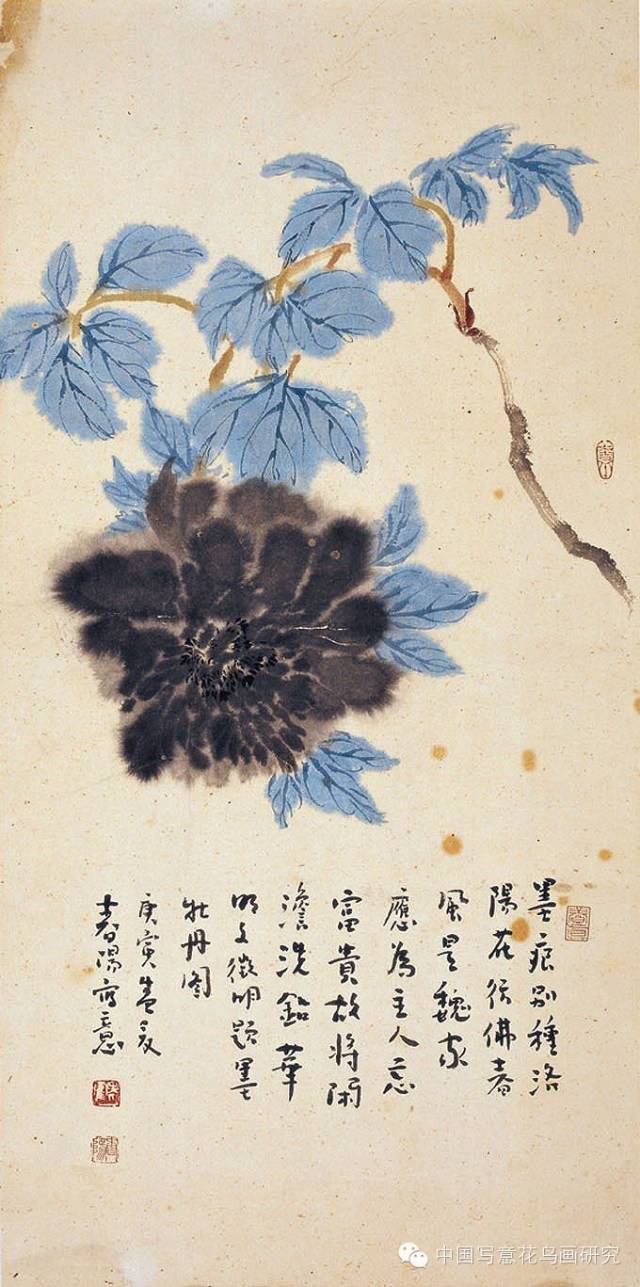 墨痕別種洛
陽花彷佛春
風是魏家
應為主人忘
富貴故將閑
澹洗鉛華
明文徵明題墨
牡丹图
庚寅孟夏
春陽寫意
中国写意花鸟画研究